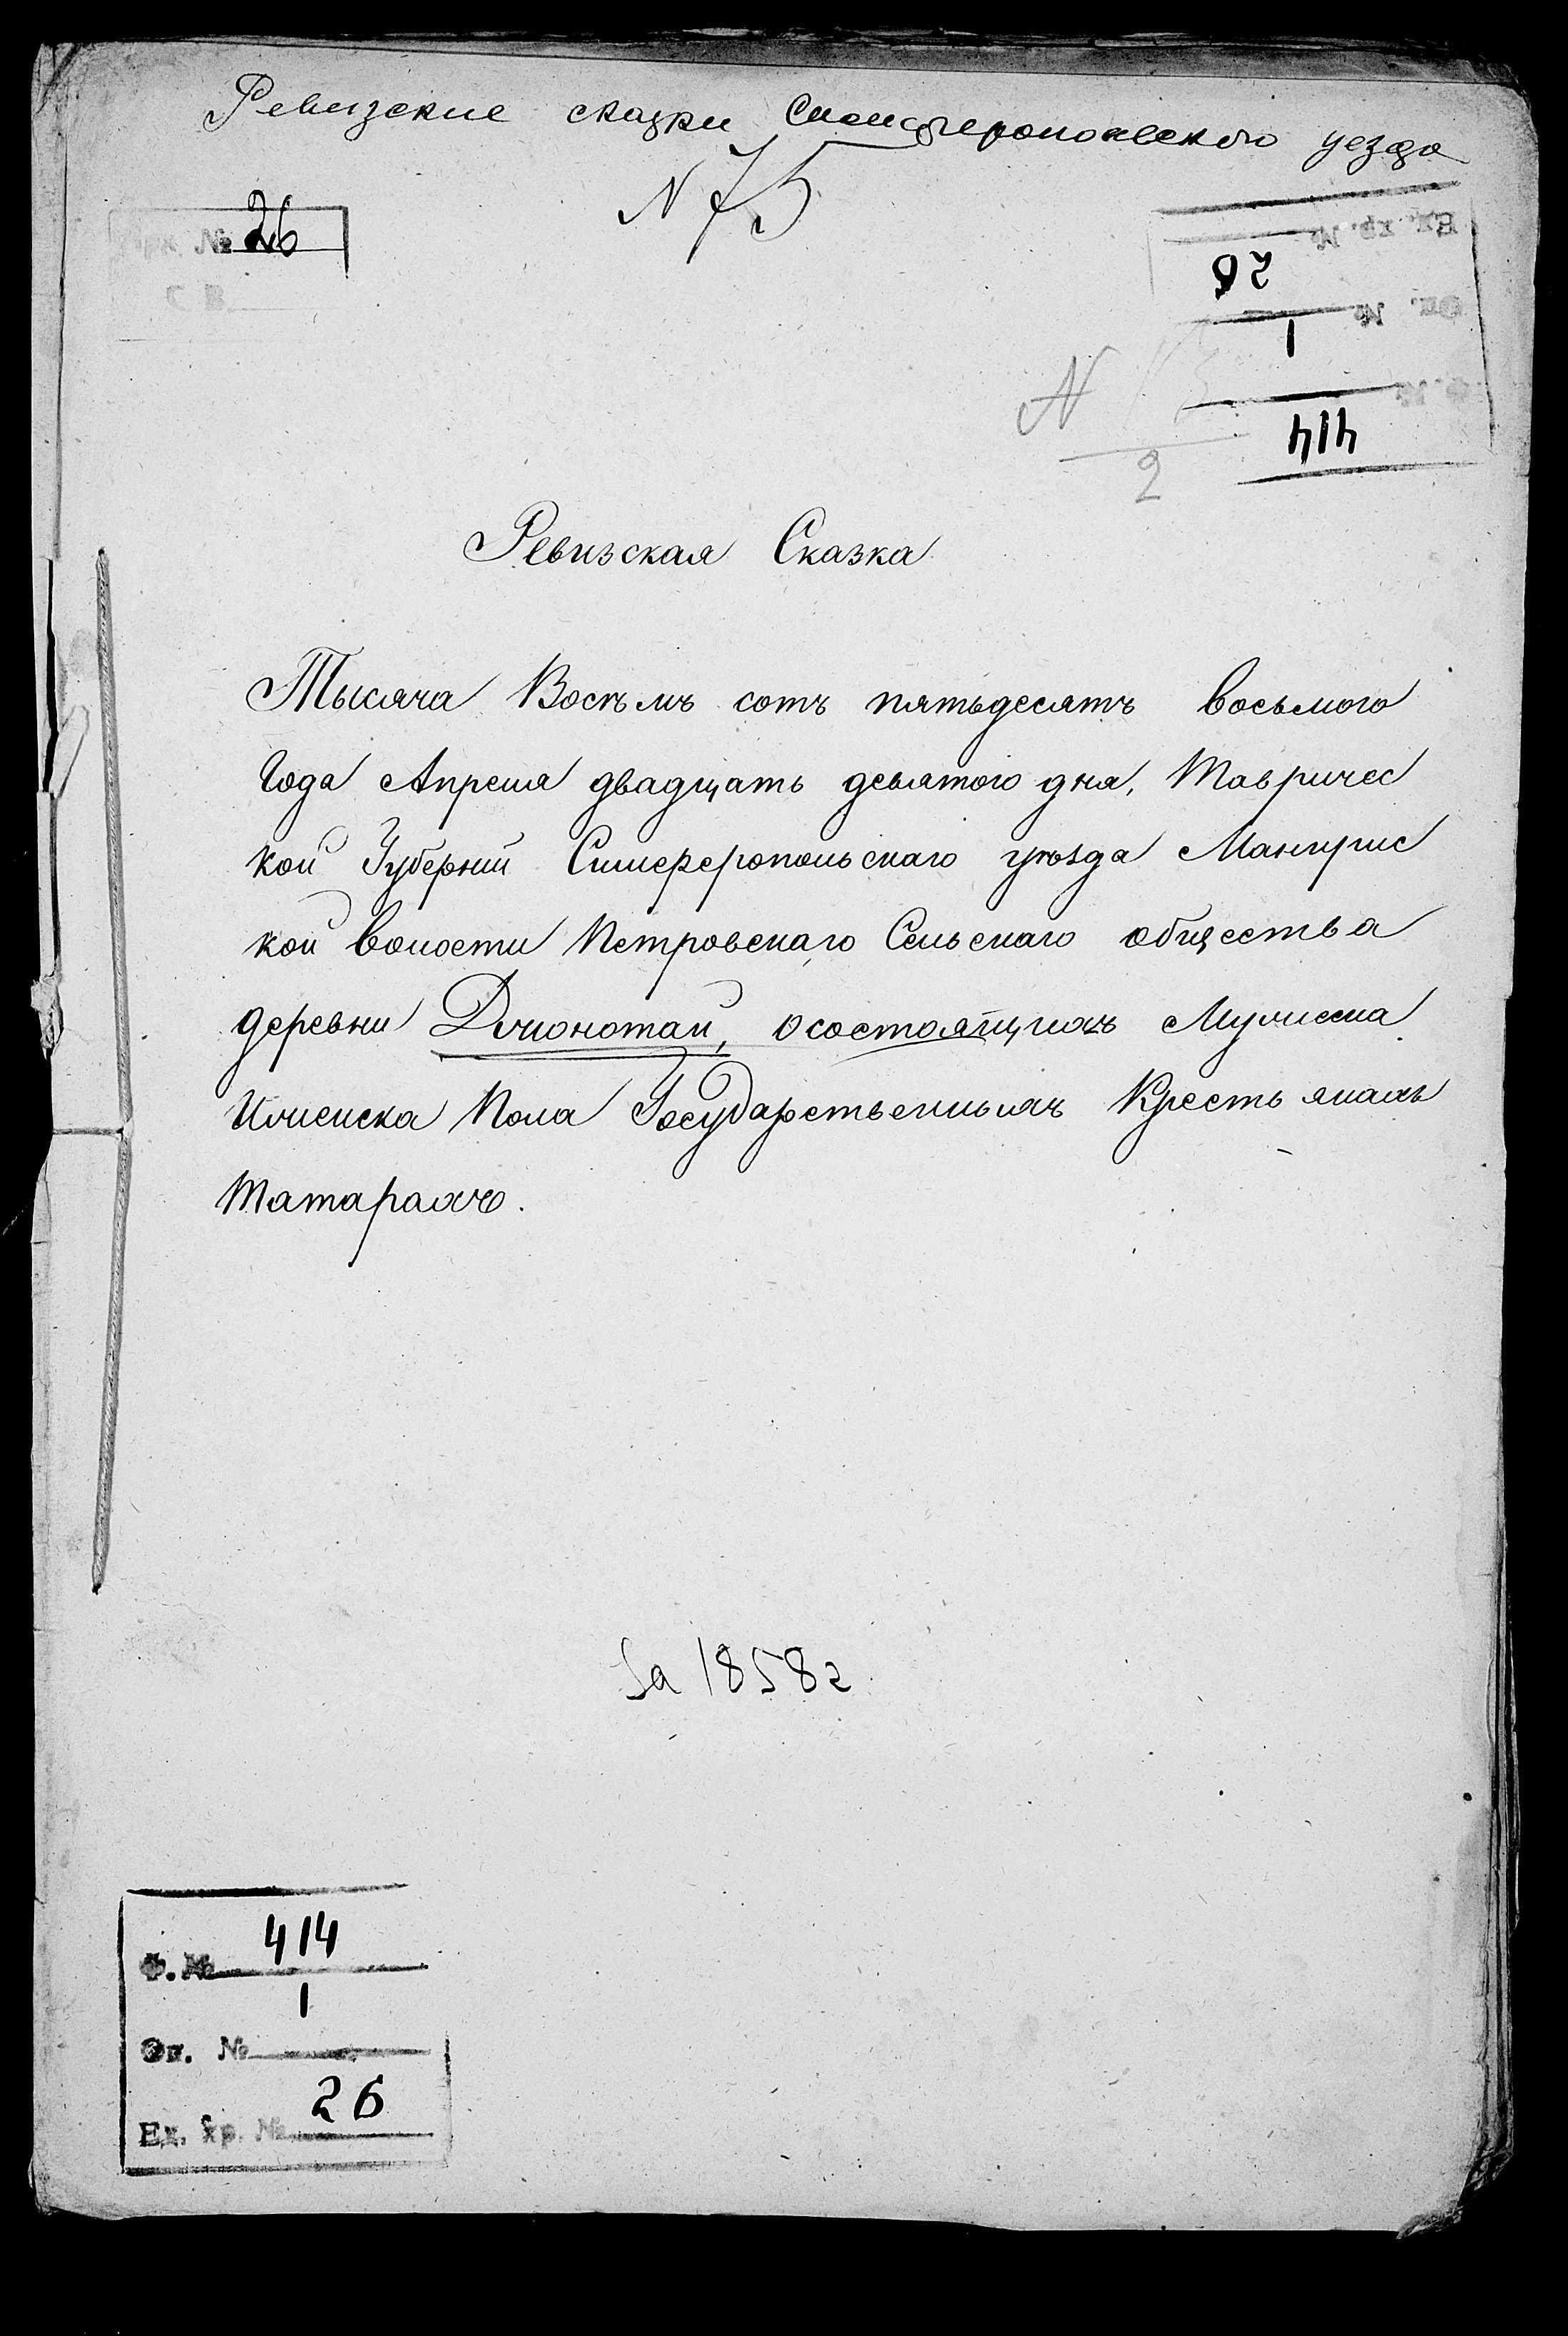 Ревизские сказки Симферопольского уезда
N 75
№ 26
С В
Ех. хр. № 26
Оп. № 1
Ф. № 414
N
2
Ревизская Сказка
Тысяча Восѣмь сотъ пятьдесятъ восьмого
Года Апреля двадцать девятого дня, Тавричес
кой Губерніи Симферопольскаго уѣзда Мангушс
кой волости Петровскаго Сельскаго общества
деревни Джонотай, осостоящихъ Мужеска
Иженска Пола Государственныхъ Крестьянахъ
Татарахъ.
За 1858 г
Ф. № 414
Оп. № 1
Ех. хр. № 26